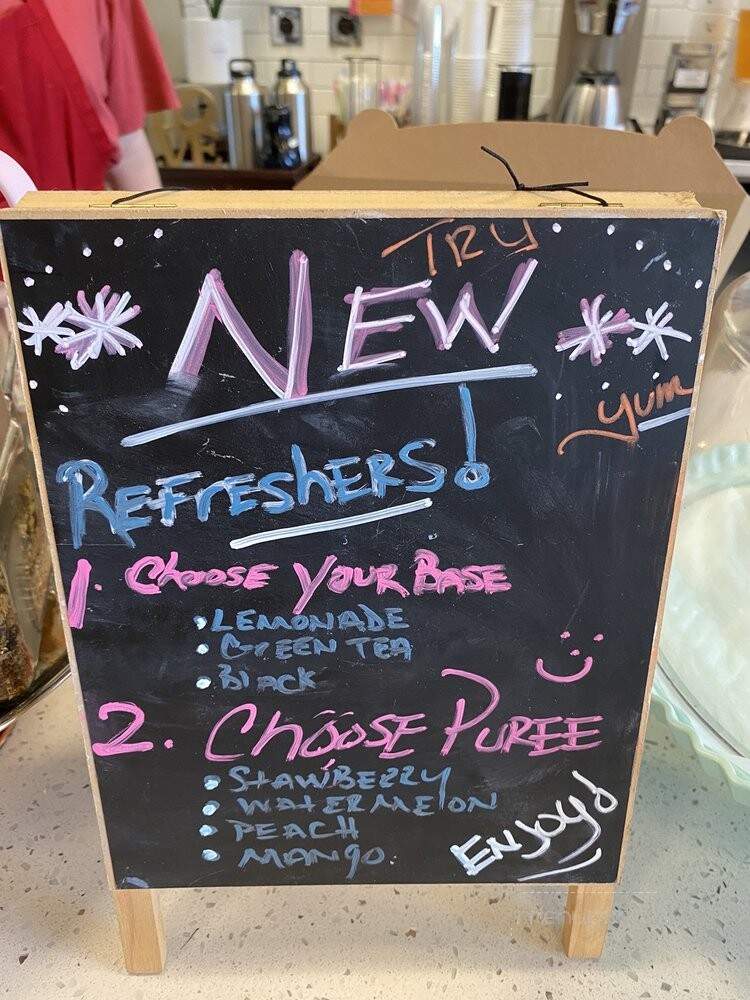 TRY
NEW
yum
REFresHERS!
1. Choose Your BASE
• LEMONADE
• GrEEN TEA
• BlACK
2. ChöösE PUREE
• STAWBERRY
• WATERMElON
• PEACH
• MANgo.
ENJOY!